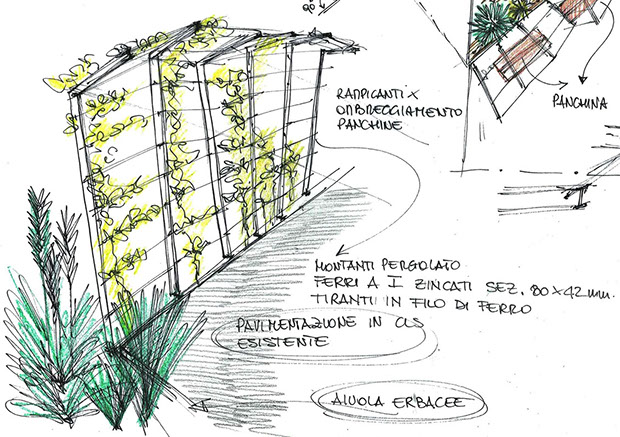 RAMPICANTI X
OMBREGGIAMENTO
PANCHINE
PANCHINA
MONTANTI PERGOLATO
FERRI A I ZINCATI SEZ. 80X42 mm.
TIRANTI IN FILO DI FERRO
PAVIMENTAZIONE IN CLS
ESISTENTE
AIUOLA ERBACEE